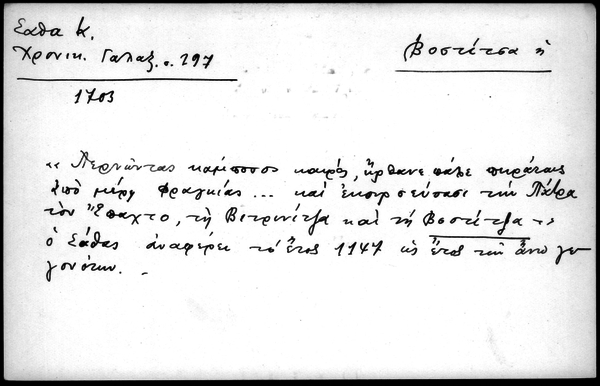 Σάθα Κ.
Χρονικ. Γαλαξ. σ. 197
Βοστίτσα ἡ
1703
«Περνῶντας κάμποσος καιρός, ἤρθανε πάλε πειράταις
ἀπὸ μέρη Φραγκίας... καὶ ἐκουρσεύσασι τὴν Πάτρα
τὸν Ἔπαχτο, τὴ Βιτρινίτζα καὶ τὴ Βοστίτζα»
ὁ Σάθας ἀναφέρει τὸ ἔτος 1147 ὡς ἔτος τῶν ἄνω γε-
γονότων. -